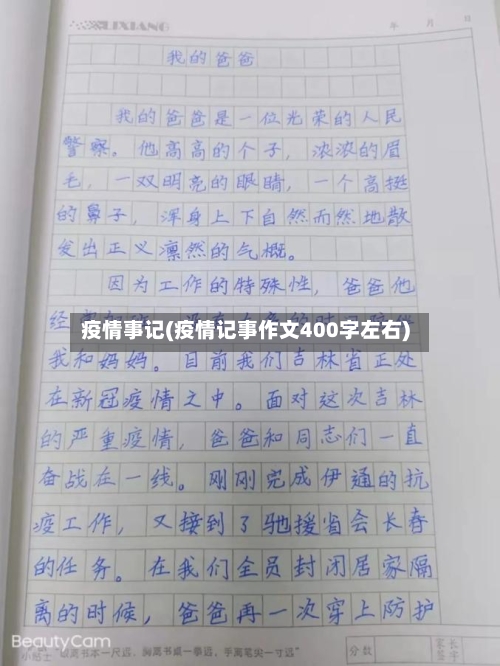 LIXIANG
年 月 日
我的爸爸
我的爸爸是一位光荣的人民
警察。他高高的个子，浓浓的眉
毛，一双明亮的眼睛，一个高挺
的鼻子，浑身上下自然而然地散
发出正义凛然的气概。
因为工作的特殊性，爸爸他
经
疫情事记(疫情记事作文400字左右)
我和妈妈。目前我们吉林省正处
在新冠疫情之中。面对这次吉林
的严重疫情，爸爸和同志们一直
奋战在一线。刚刚完成伊通的抗
疫工作，又接到了驰援省会长春
的任务。在我们全员封闭居家隔
离的时候，爸爸再一次穿上防护
BeautyCam
小贴士 眼离书本一尺远，胸离书桌一拳远，手离笔尖一寸远
分数
家长
签字